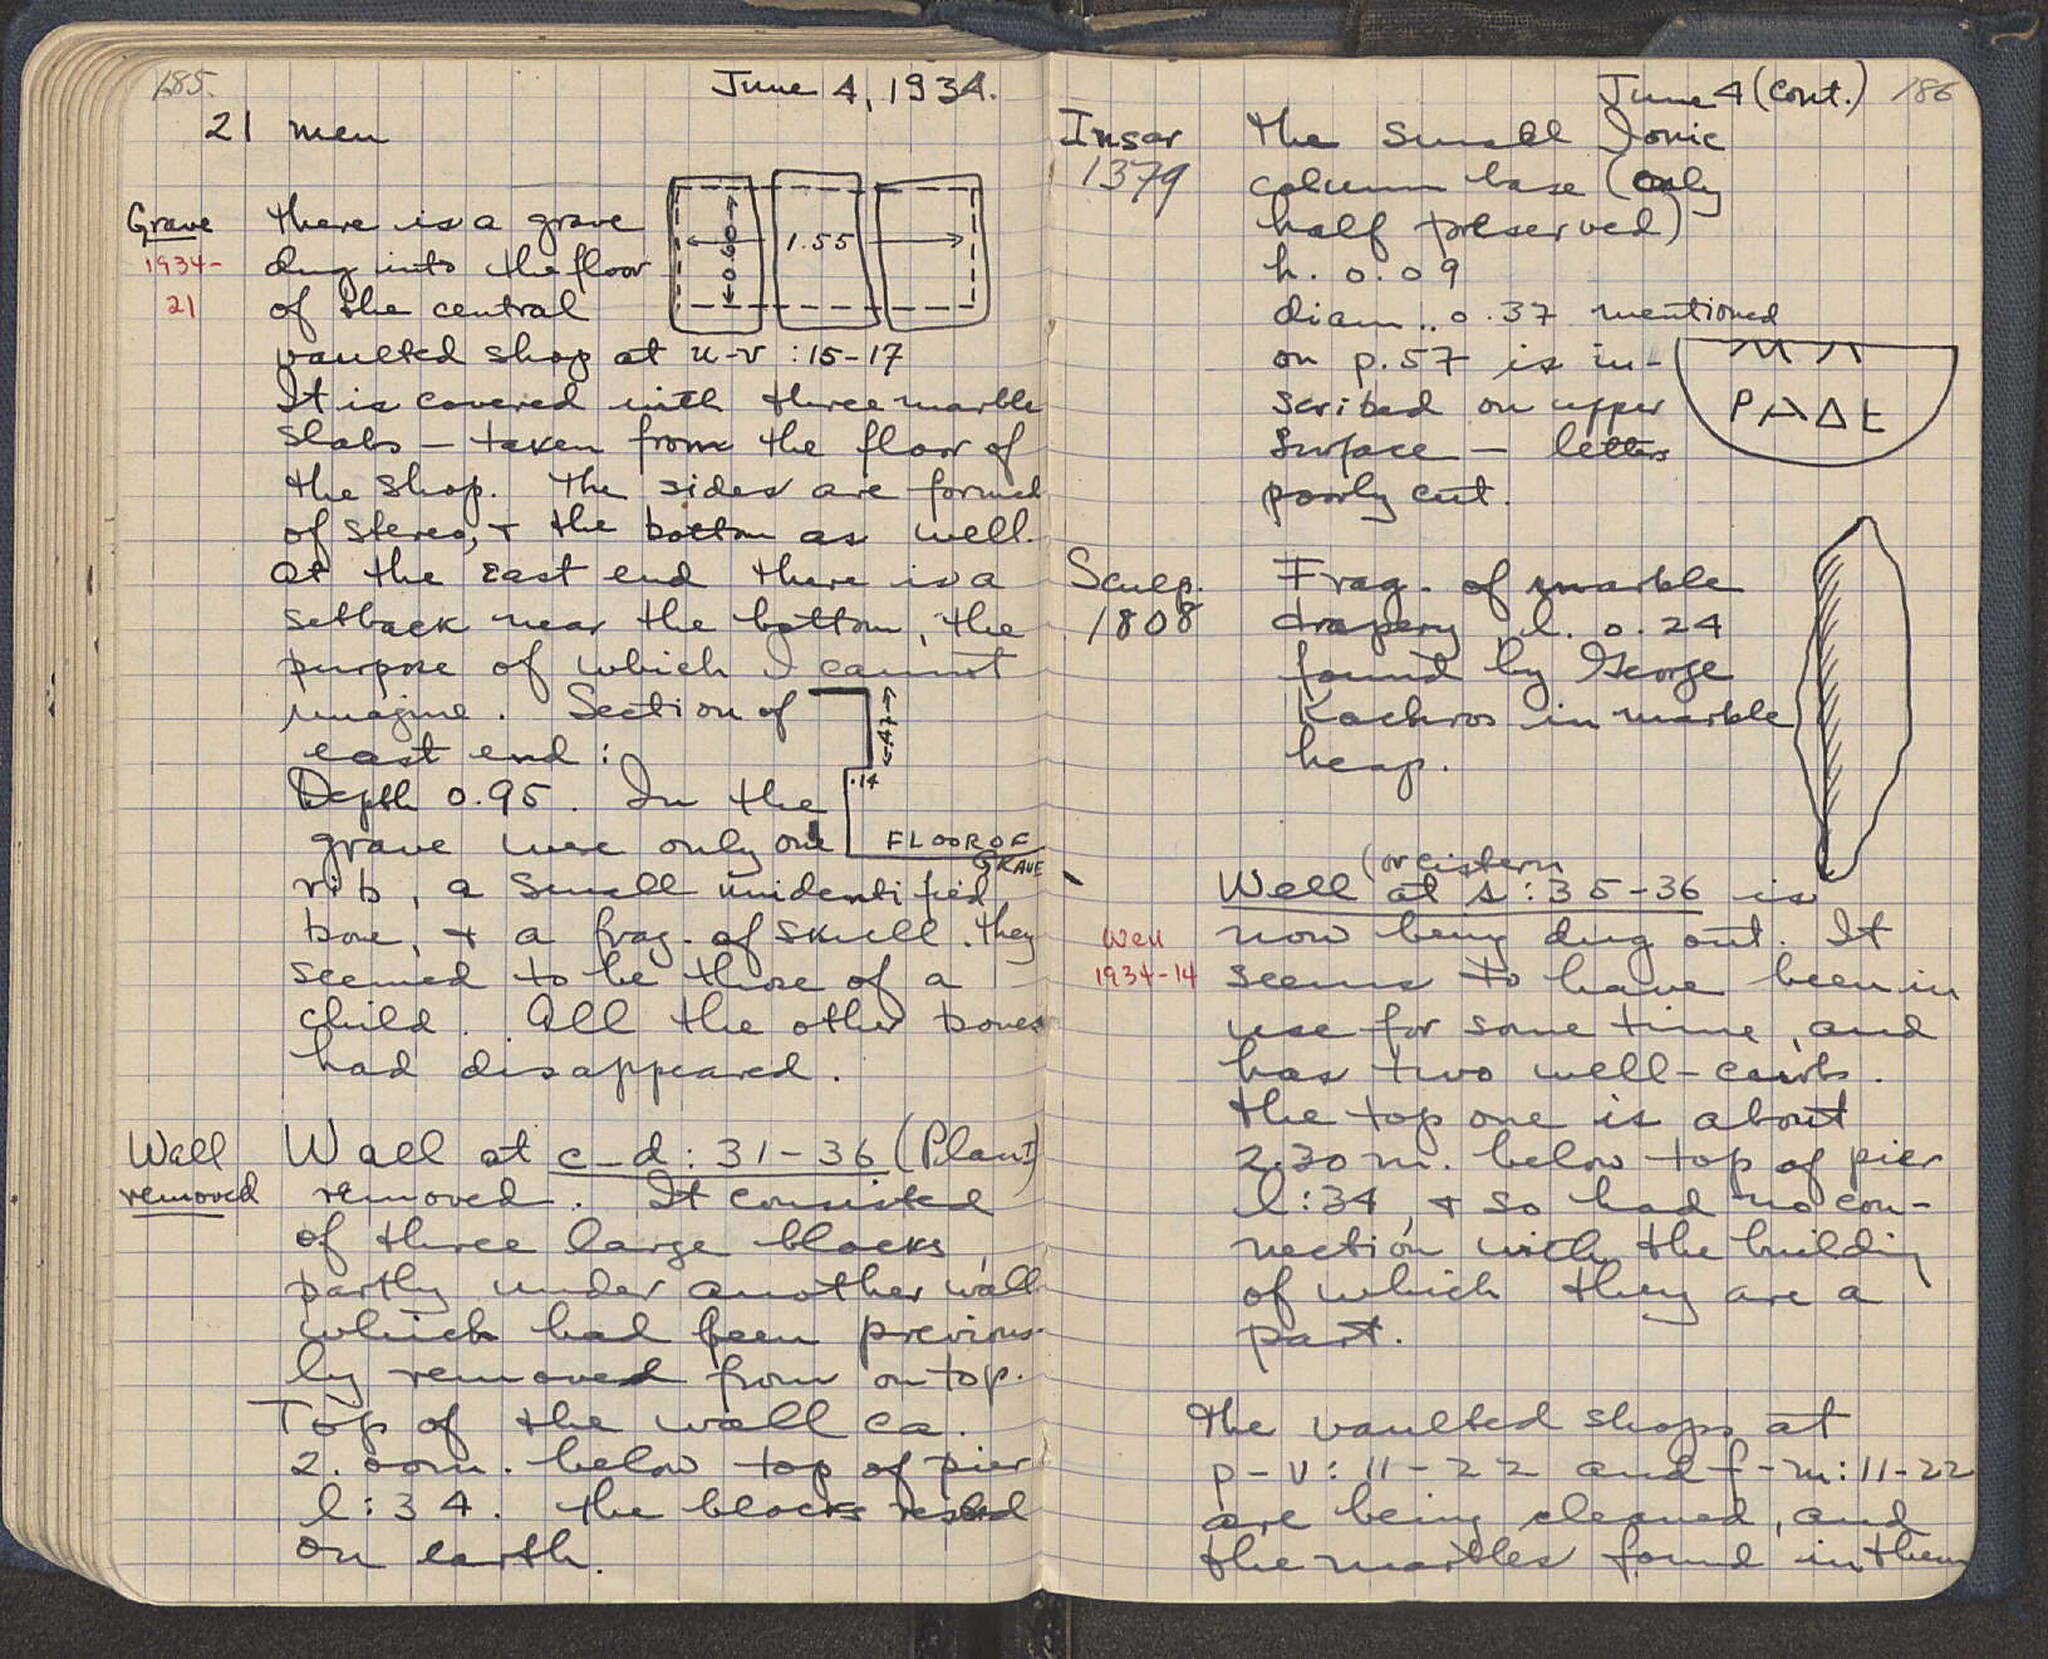 185.
June 4, 1934.
21 men
Grave
1934-
21
There is a grave
dug into the floor
of the central
vaulted shop at u-v :15-17
0.60
1.55
It is covered with three marble
slabs — taken from the floor of
the shop. The sides are formed
of stereo, + the bottom as well.
At the east end there is a
setback near the bottom, the
purpose of which I cannot
imagine. Section of
east end:
.47
.14
FLOOR OF
GRAVE
Depth 0.95. In the
grave were only one
rib, a small unidentified
bone, + a frag. of skull. They
seemed to be those of a
child. All the other bones
had disappeared.
Wall
removed
Wall at c-d: 31-36 (Plan I)
removed. It consisted
of three large blocks,
partly under another wall
which had been previous-
ly removed from on top.
Top of the wall ca.
2.00m. below top of pier
l:34. The blocks rested
on earth.
June 4 (cont.) 186
Inscr
1379
The small Ionic
column base (only
half preserved)
h. 0.09
diam.. 0.37 mentioned
on p. 57 is in-
scribed on upper
surface — letters
poorly cut.
ΡΑΔΕ
Sculp.
1808
Frag. of marble
drapery l. 0.24
found by George
Kachros in marble
heap.
(or cistern
Well at s:35-36 is
Well
1934-14
now being dug out. It
seems to have been in
use for some time, and
has two well-curbs.
The top one is about
2.30 m. below top of pier
l:34, + so had no con-
nection with the building
of which they are a
part.
The vaulted shops at
p-v: 11-22 and f-m: 11-22
are being cleaned, and
the marbles found in them